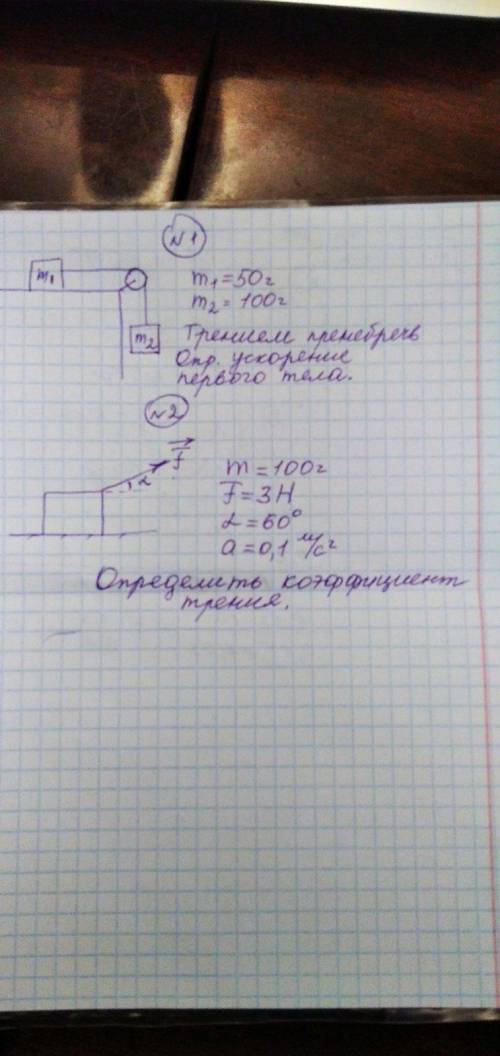 №1
m₁
m₁ = 50г
m₂ = 100г
m₂
Трением пренебречь
Опр. ускорение
первого тела.
№2
F
α
m = 100г
F = 3Н
α = 60°
a = 0,1 м/с²
Определить коэффициент
трения.